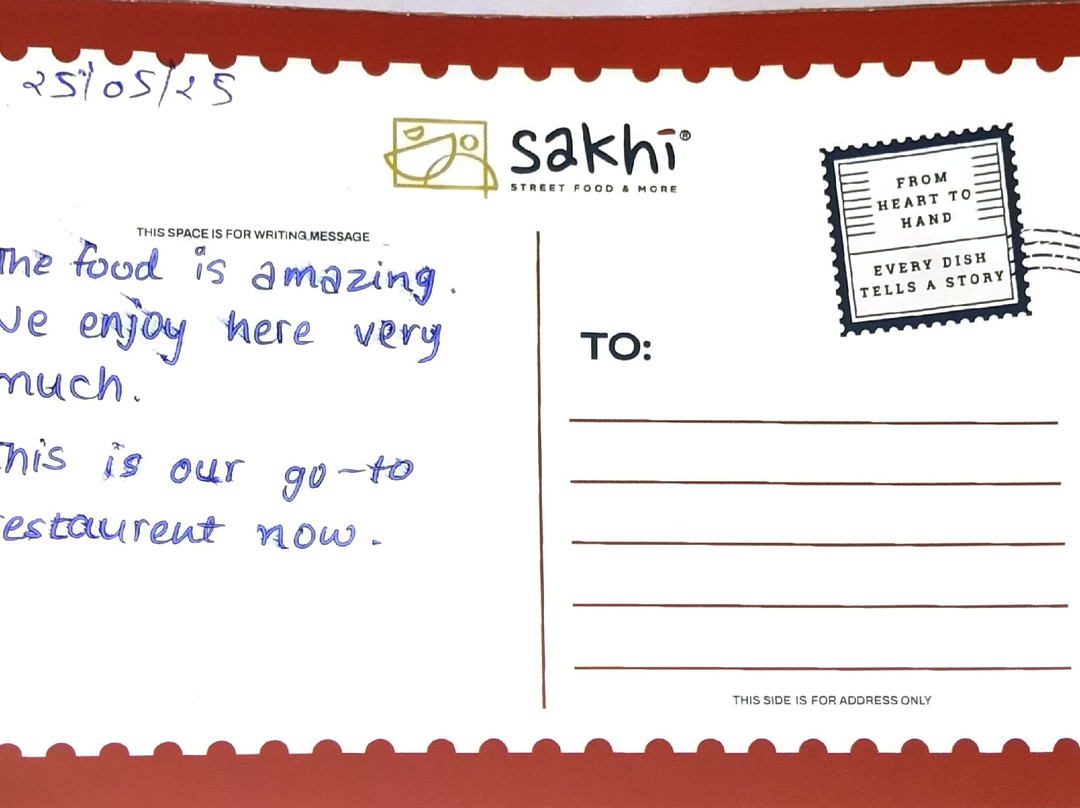 25/05/25
sakhi®
STREET FOOD & MORE
FROM
HEART TO
HAND
EVERY DISH
TELLS A STORY
THIS SPACE IS FOR WRITING MESSAGE
The food is amazing.
We enjoy here very
much.
This is our go-to
restaurent now.
TO:
THIS SIDE IS FOR ADDRESS ONLY